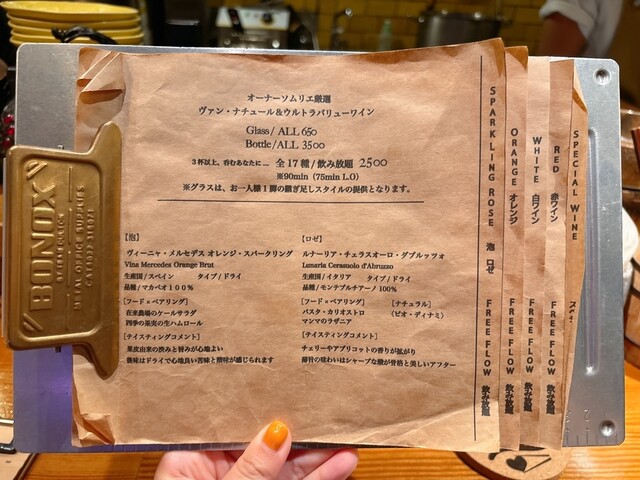 オーナーソムリエ厳選
ヴァン・ナチュール&ウルトラバリューワイン
Glass/ ALL 650
Bottle/ ALL 3500
3杯以上、呑むあなたに... 全17種/飲み放題 2500
※90min (75min L.O)
※グラスは、お一人様1脚の継ぎ足しスタイルの提供となります。
【泡】
ヴィーニャ・メルセデス オレンジ・スパークリング
Vina Mercedes Orange Brut
生産国/スペイン タイプ/ドライ
品種/マカベオ100%
[フード×ペアリング]
在来農場のケールサラダ
四季の果実の生ハムロール
[テイスティングコメント]
果皮由来の渋みと旨みが心地よい
後味はドライで心地良い苦味と酸味が感じられます
【ロゼ】
ルナーリア・チェラスオーロ・ダブルッツォ
Lunaria Cerasuolo d'Abruzzo
生産国/イタリア タイプ/ドライ
品種/モンテプルチアーノ100%
[フード×ペアリング] [ナチュラル]
パスタ・カリオストロ (ビオ・ディナミ)
マンマのラザニア
[テイスティングコメント]
チェリーやアプリコットの香りが拡がり
薄旨の味わいはシャープな酸が骨格と美しいアフター
SPARKLING ROSE 泡 ロゼ FREE FLOW 飲み放題
ORANGE オレンジ FREE FLOW 飲み放題
WHITE 白ワイン FREE FLOW 飲み放題
RED 赤ワイン FREE FLOW 飲み放題
SPECIAL WINE
BONOX
METAL OFFICE SUPPLIES